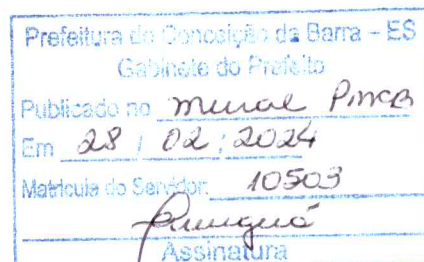 Prefeitura de Conceição da Barra – ES
Gabinete do Prefeito
Publicado no mural PMCB
Em 28 / 02 / 2024
Matricula do Servidor: 10503
Assinatura